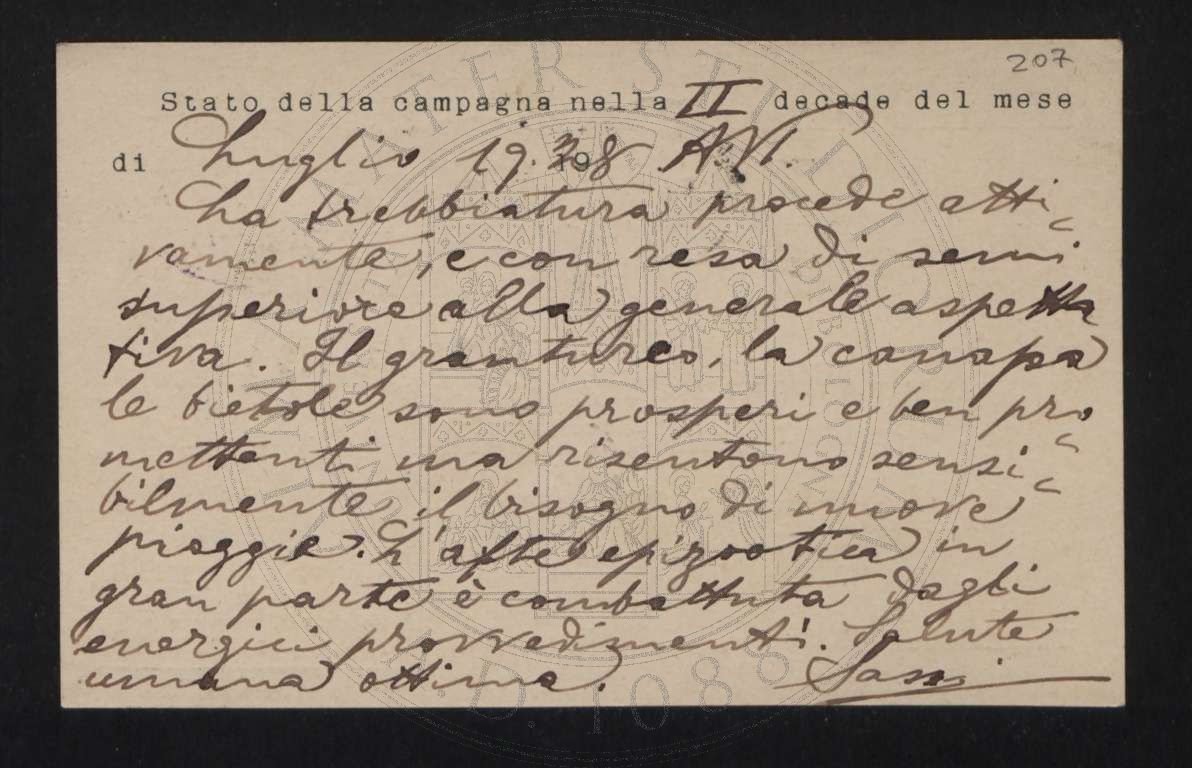 207
Stato della campagna nella II decade del mese
di Luglio 1938 A.VI.
La trebbiatura procede atti-
vamente, e con resa di semi
superiore alla generale aspetta
tiva. Il granturco, la canapa
le bietole sono prosperi e ben pro-
mettenti ma risentono sensi-
bilmente il bisogno di nuove
pioggie. L'afte epizootica in
gran parte è combattuta dagli
energici provvedimenti. Salute
umana ottima. Sassi